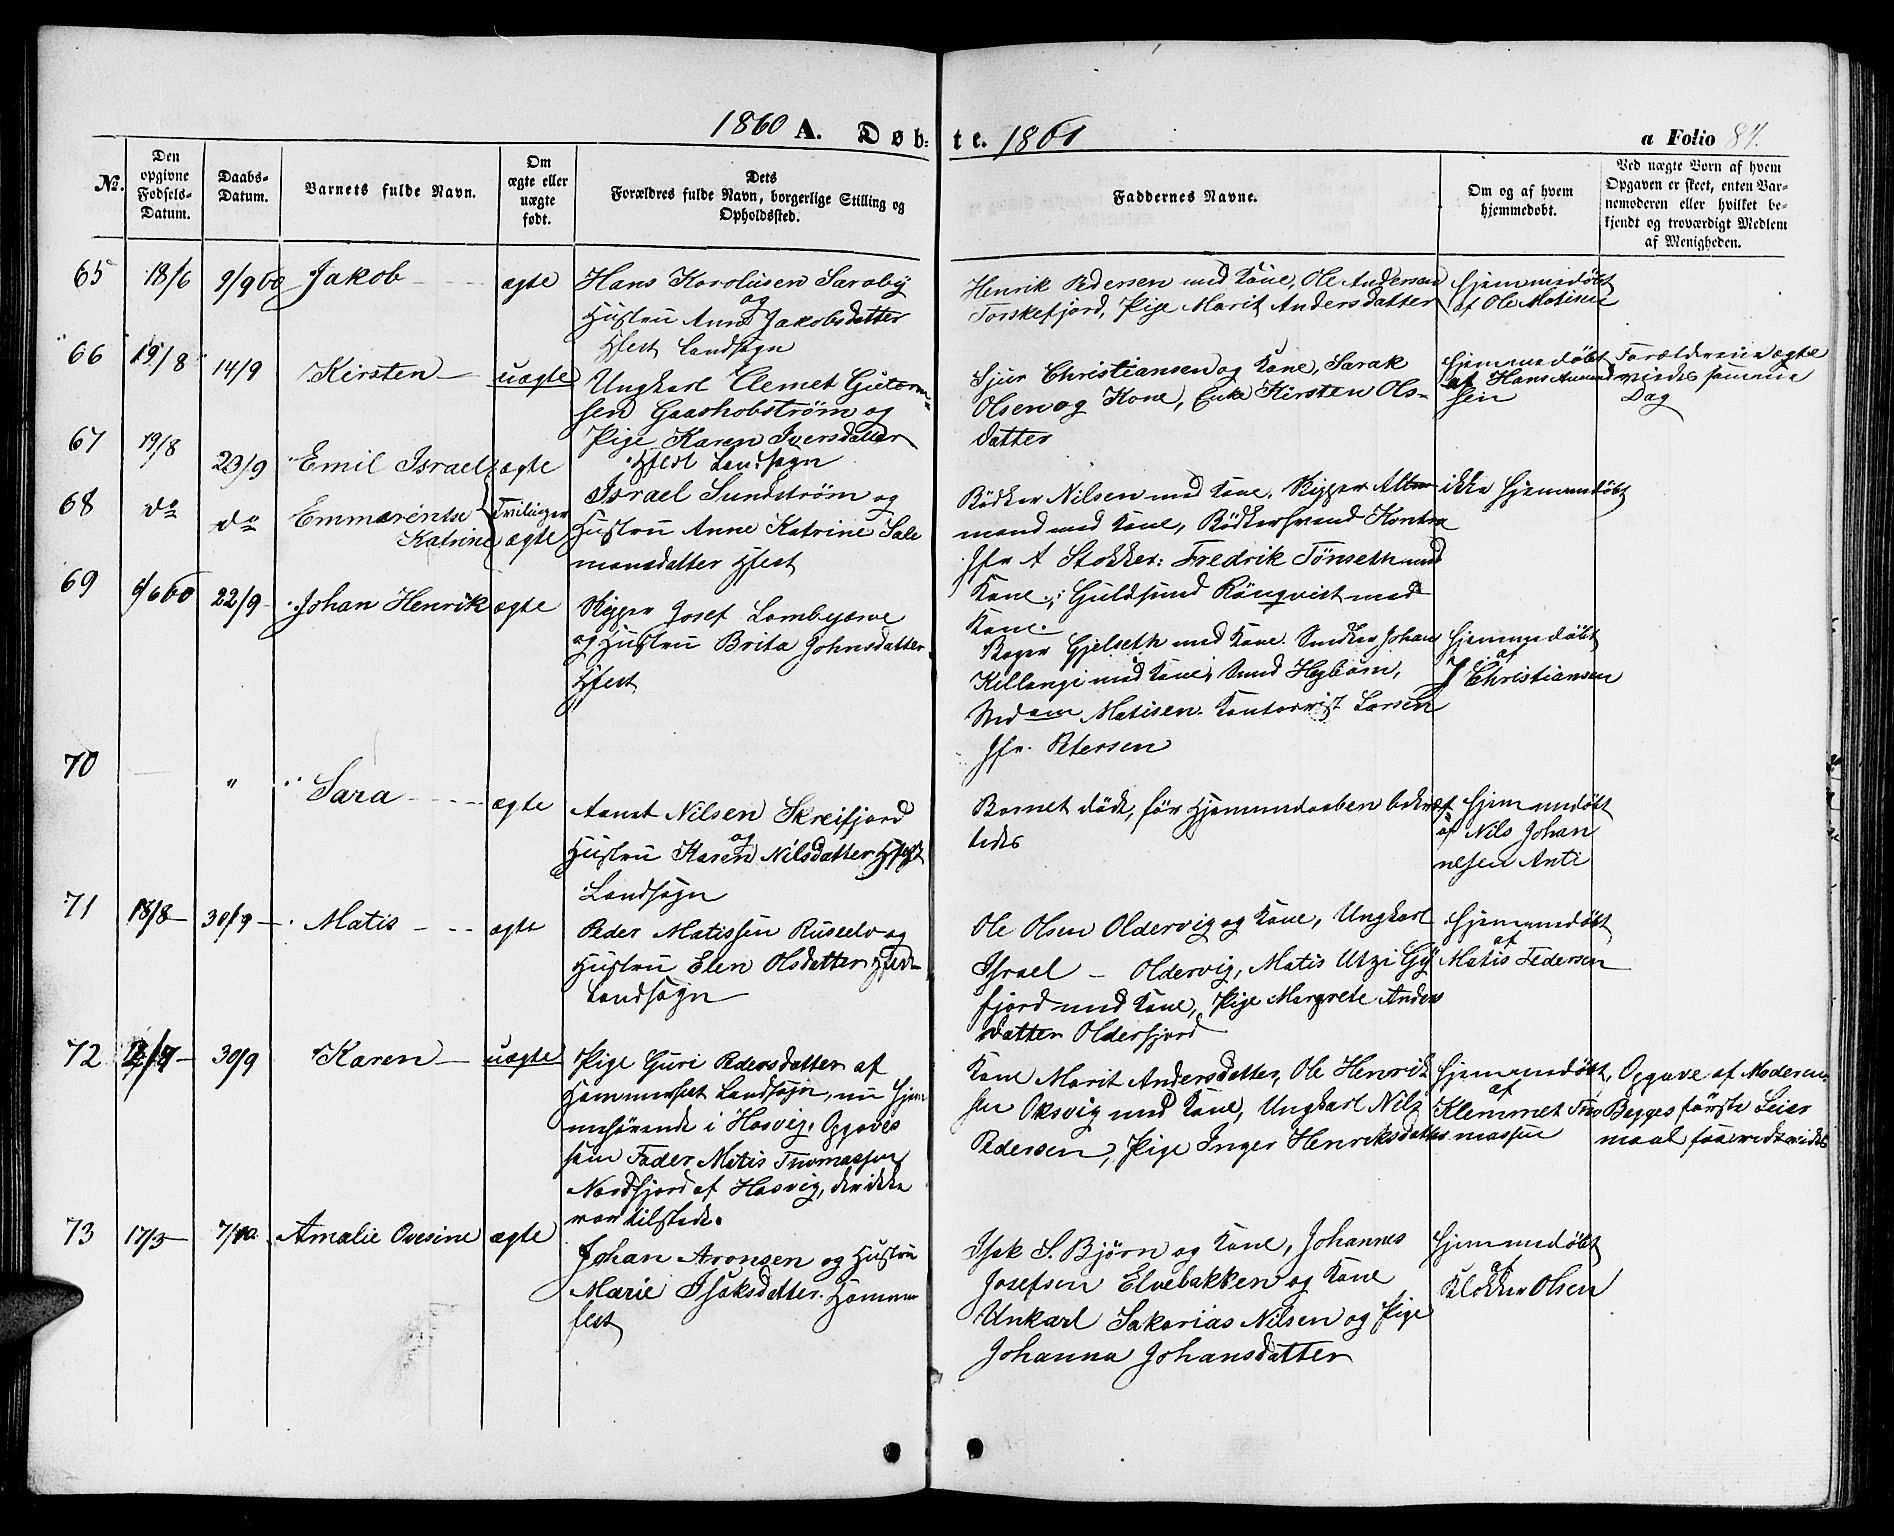 1860 A. Døb=
te. 1861
a Folio 87.
No.
Den opgivne Fødsels-Datum.
Daabs-Datum.
Barnets fulde Navn.
Om ægte eller uægte født.
Dets Forældres fulde Navn, borgerlige Stilling og Opholdssted.
Faddernes Navne.
Om og af hvem hjemmedøbt.
Ved uægte Børn af hvem Opgaven er skeet, enten Barnemoderen eller hvilket bekjendt og troværdigt Medlem af Menigheden.
65 18/6 9/9 60 Jakob ægte Hans Karolusen Saraby
og
Hustru Anne Jakobsdatter
Hfest Landsogn
Henrik Pedersen med Kone, Ole Andersen
Torskefjord, Pige Marit Andersdatter
hjemmedøbt
af Ole Matisen
66 15/8 14/9 Kirsten uægte Ungkarl Clemet Gutorm=
sen Gaashobstrøm og
Pige Karen Iversdatter
Hfest Landsogn
Sjur Christiansen og Kone, Sarak
Olsen og Kone, Enke Kirsten Ols-
datter
hjemmedøbt
af Hans
sen
Forældrene ægte
viedes samme
Dag
67 19/8 23/9 Emil Israel ægte
68 do do Emmarentse
Katrine
Tvilinger
ægte
Israel Sundstrøm og
Hustru Anne Katrine Sale
monsdatter Hfest
Bødker Nilsen med Kone, Skipper Alter
mand med Kone, Bødkersvend Kontra
Jfr A Stokker: Fredrik Tønseth med
Kone; Guldsmed Rönqvist med
Kone.
ikke hjemmedøbt
69 6/6 60 22/9 Johan Henrik ægte Skipper Josef Lombyærve
og Hustru Brita Johnsdatter
Hfest
Bager Gjelseth med Kone. Snedker Johan
Killangi med Kone; Smed Hegbom,
Madam Matisen. Kontorist Larsen
Jfr. Petersen
hjemmedøbt
af
J Christiansen
70 " Sara ægte Aamot Nilsen Skreifjord
og
Hustru Karen Nilsdatter Hfest
Landsogn
Barnet døde, før Hjemmedaaben bekræf
tedes
hjemmedøbt
af Nils Johan
nesen Anti
71 18/8 30/9 Matis ægte Peder Matissen Russelv og
Hustru Elen Olsdatter Hfest
Landsogn
Ole Olsen Oldervig og Kone, Ungkarl
Israel - Oldervig, Matis Utzi Gy
fjord med Kone, Pige Margrete Anders
datter Olderfjord
hjemmedøbt
af
Matis Pedersen
72 30/9 Karen uægte Pige Guri Pedersdatter af
Hammerfest Landsogn, nu hjem
mehørende i Hasvig. Opgaves
som Fader Matis Thomassen
Nordfjord af Hasvig, der ikke
var tilstede.
Kone Marit Andersdatter, Ole Henrik
sen Oksvig med Kone, Ungkarl Nils
Pedersen, Pige Inger Henriksdatter
hjemmedøbt
af
Klemmet Tho
massen
Opgave af Moderen.
Begges første Leier
maal saavidt vides
73 17/3 7/10 Amalie Ovesine ægte Johan Aronsen og Hustru
Marie Isaksdatter. Hammer
fest
Isak S. Bjørn og Kone, Johannes
Josefsen Elvebakken og Kone
Unkarl Sakarias Nilsen og Pige
Johanna Johansdatter
hjemmedøbt
af
Klokker Olsen